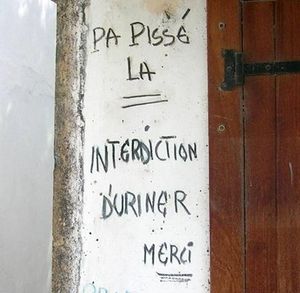 PA PISSÉ
LA
INTERDICTION
D'URINER
MERCI